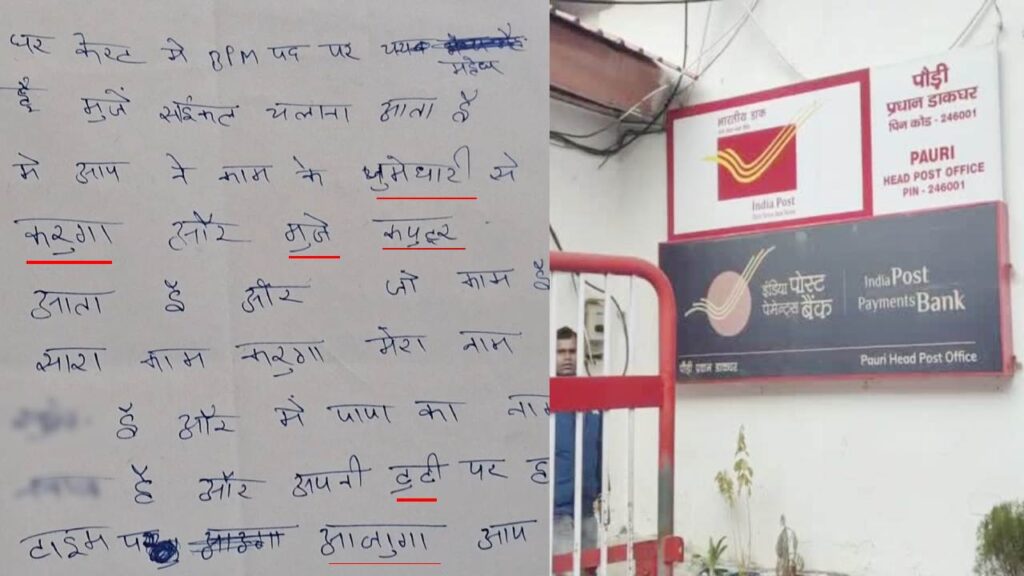 पर केस्ट मे BPM पद पर
महेय
है मुजें सईकल चलाना आता है
मे आप ने काम के घुमेधारी से
करुगा और मुजे कपुटर
आता है और जो काम है
सारा काम करुगा मेरा नाम
है और में पापा का नाम
है और अपनी टुटी पर ह
टाइम पर आजुगा आप
भारतीय डाक
India Post
पौड़ी
प्रधान डाकघर
पिन कोड - 246001
PAURI
HEAD POST OFFICE
PIN - 246001
इंडिया पोस्ट
पेमेन्ट्स बैंक
India Post
Payments Bank
पौड़ी प्रधान डाकघर
Pauri Head Post Office